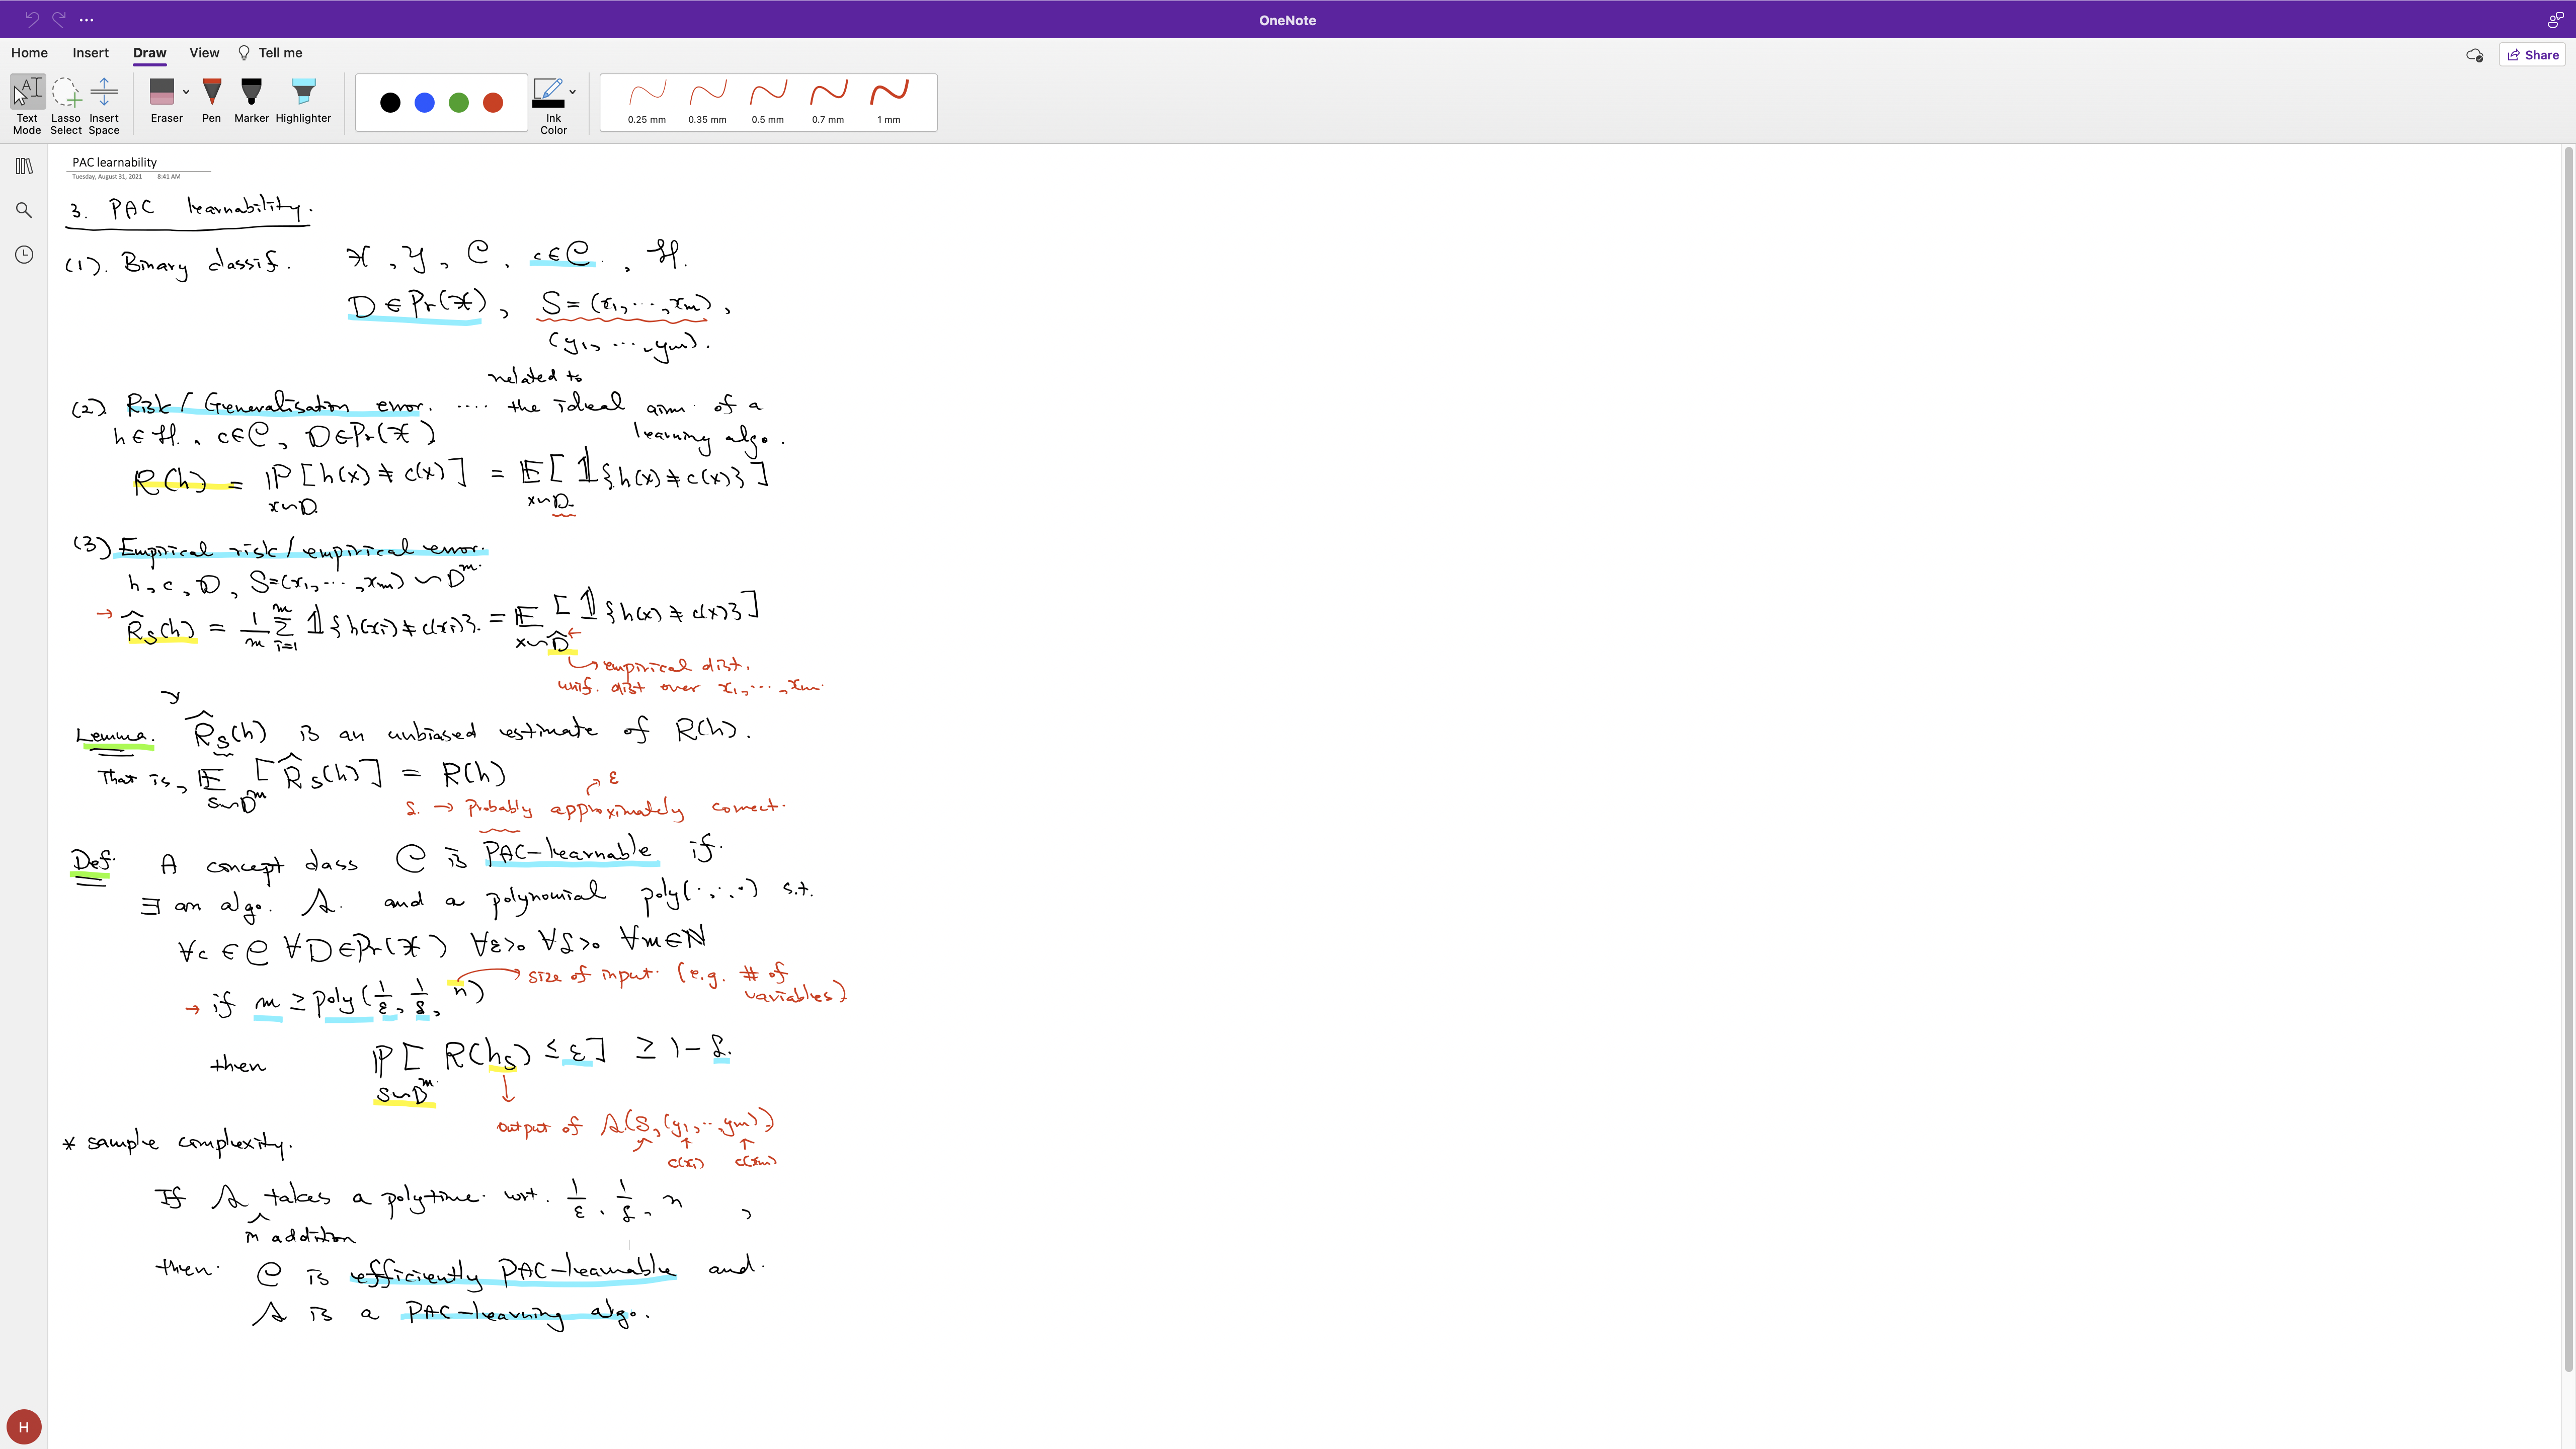 OneNote
Home Insert Draw View Tell me
Share
Text Mode
Lasso Select
Insert Space
Eraser
Pen
Marker
Highlighter
Ink Color
0.25 mm 0.35 mm 0.5 mm 0.7 mm 1 mm
PAC learnability
Tuesday, August 31, 2021 8:41 AM
3. PAC learnability.
(1). Binary classif. 𝒳, 𝒴, 𝒞, c∈𝒞, ℋ.
D ∈ Pr(𝒳), S = (x₁, ⋯, xₘ),
(y₁, ⋯, yₘ).
related to
(2) Risk / Generalisation error. ···· the ideal aim of a
learning algo.
h∈ℋ, c∈𝒞, D∈Pr(𝒳)
R(h) = ℙ_{x∼D}[h(x) ≠ c(x)] = 𝔼_{x∼D}[𝟙{h(x) ≠ c(x)}]
(3) Empirical risk / empirical error.
h, c, D, S=(x₁, ⋯, xₘ) ∼ Dᵐ.
→ R̂_S(h) = 1/m Σ_{i=1}^{m} 𝟙{h(xᵢ) ≠ c(xᵢ)} = 𝔼_{x∼D̂}[𝟙{h(x) ≠ c(x)}]
empirical dist.
unif. dist over x₁, ⋯, xₘ.
Lemma. R̂_S(h) is an unbiased estimate of R(h).
That is, 𝔼_{S∼Dᵐ}[R̂_S(h)] = R(h)
ε
δ. → Probably approximately correct.
Def. A concept class 𝒞 is PAC-learnable if
∃ an algo. 𝒜. and a polynomial poly(·,·,·) s.t.
∀c∈𝒞 ∀D∈Pr(𝒳) ∀ε>0 ∀δ>0 ∀m∈ℕ
→ if m ≥ poly(1/ε, 1/δ, n) → size of input. (e.g. # of variables)
then ℙ_{S∼Dᵐ}[R(h_S) ≤ ε] ≥ 1−δ.
output of 𝒜(S, (y₁, ⋯, yₘ))
c(x₁) c(xₘ)
* sample complexity.
If 𝒜 takes a polytime wrt. 1/ε, 1/δ, n,
in addition
then 𝒞 is efficiently PAC-learnable and
𝒜 is a PAC-learning algo.
H